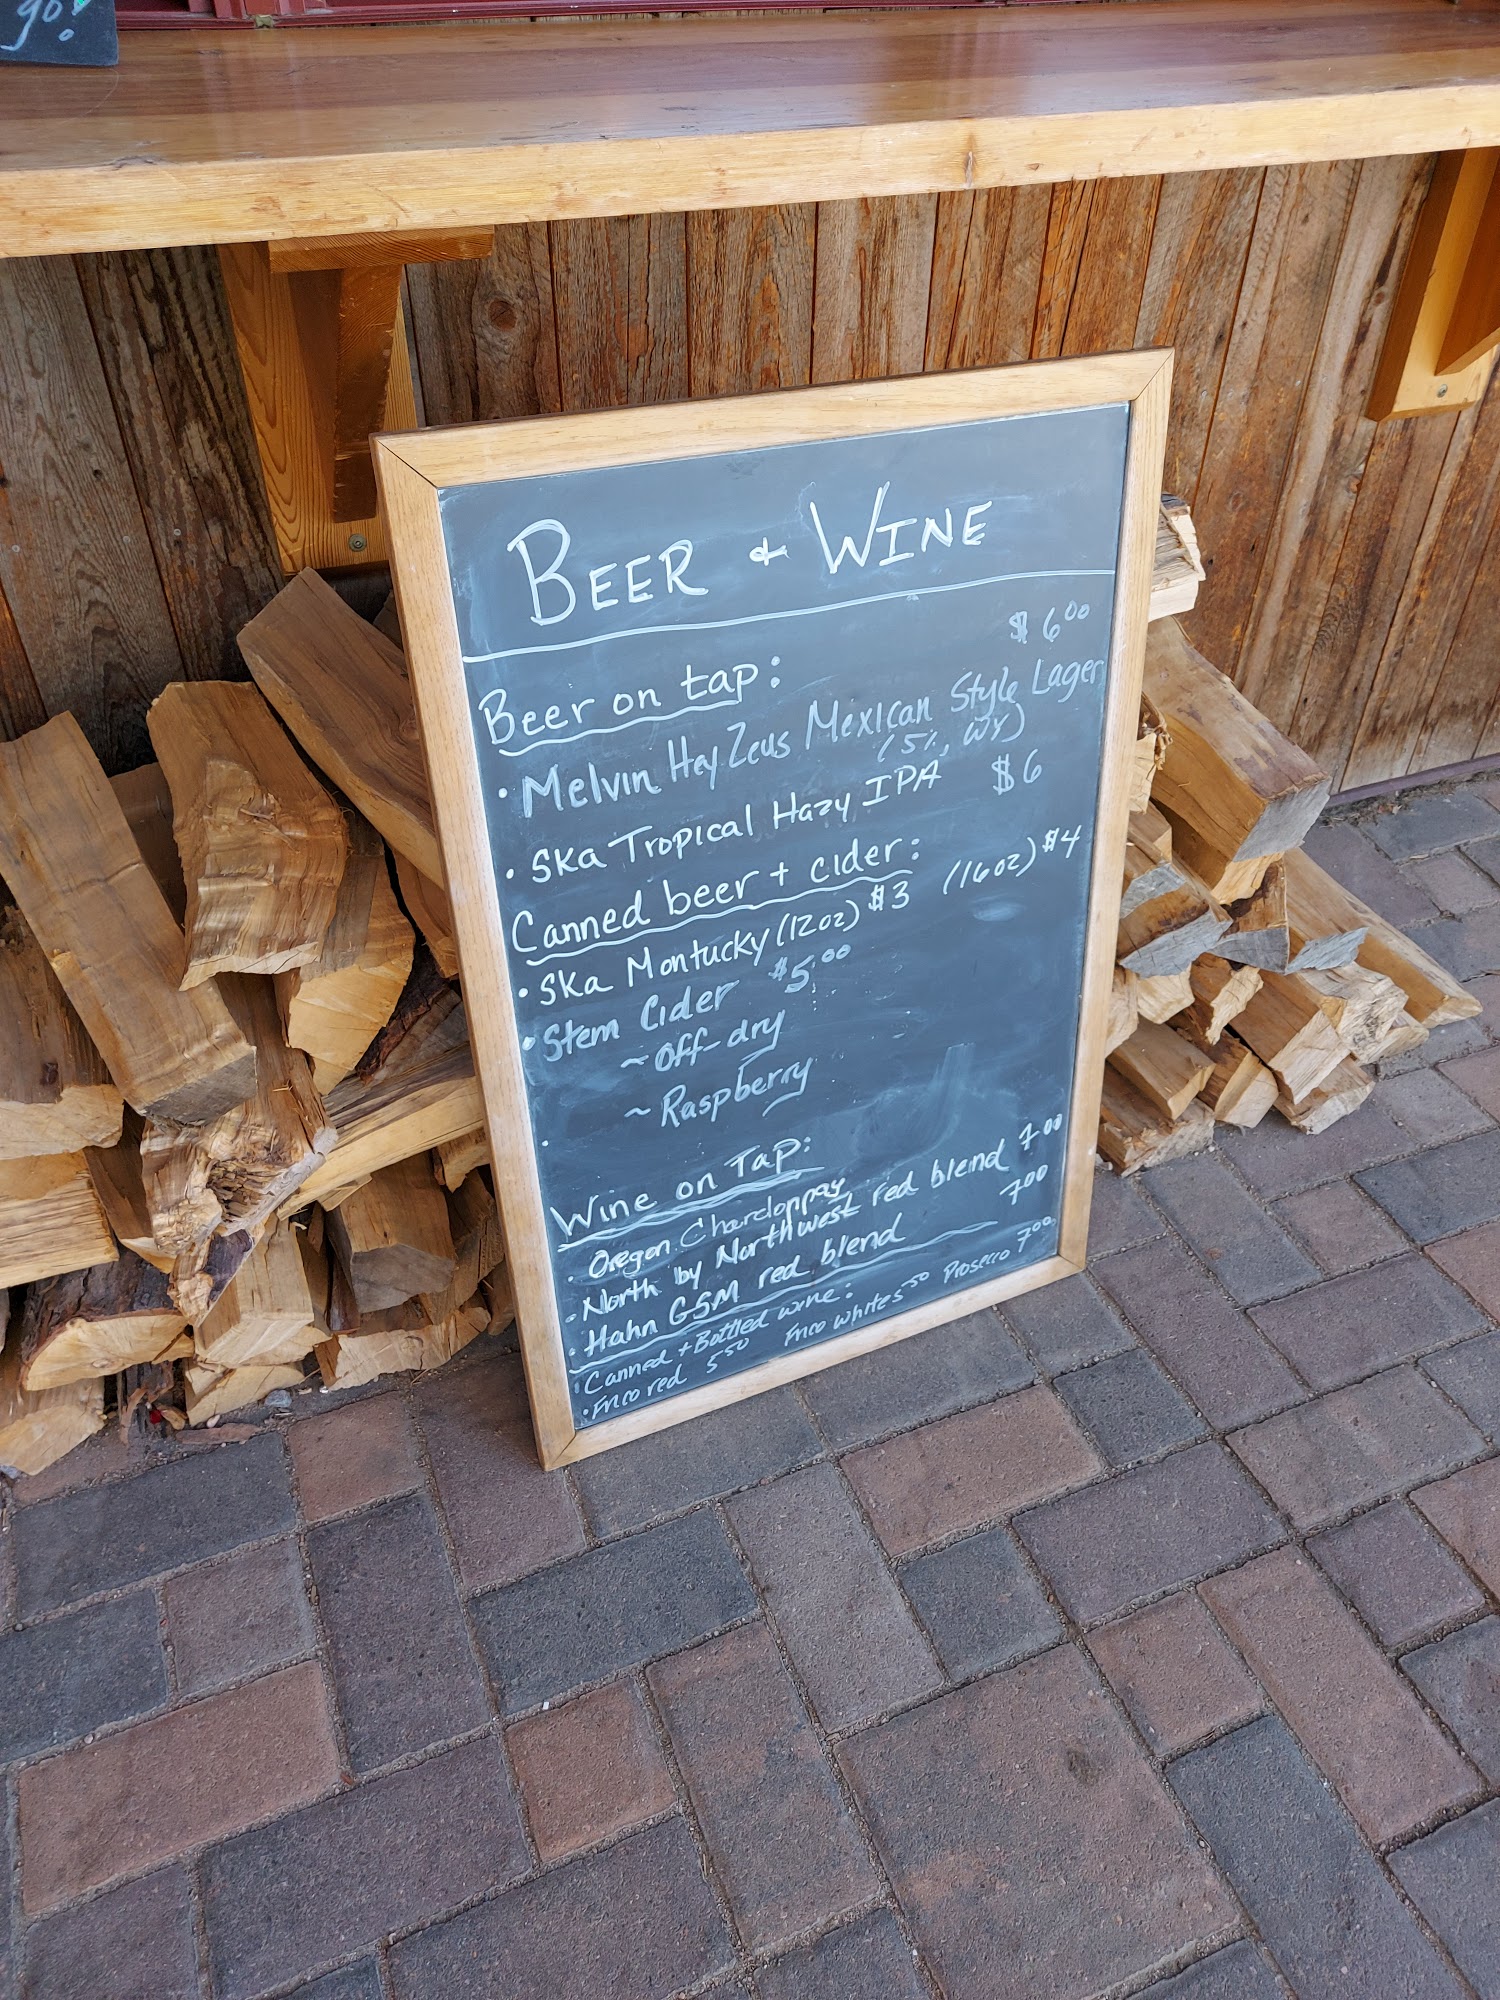 go!
BEER + WINE
Beer on tap: $6.00
• Melvin Hey Zeus Mexican Style Lager
(5%, WY)
• Ska Tropical Hazy IPA $6
Canned beer + cider:
• Ska Montucky (12oz) $3 (16oz) $4
• Stem Cider $5.00
~ Off-dry
~ Raspberry
•
Wine on Tap:
• Oregon Chardonnay
• North by Northwest red blend 7.00
• Hahn GSM red blend 7.00
Canned + Bottled wine:
• Frico red 5.50 Frico White 5.50 Prosecco 7.00